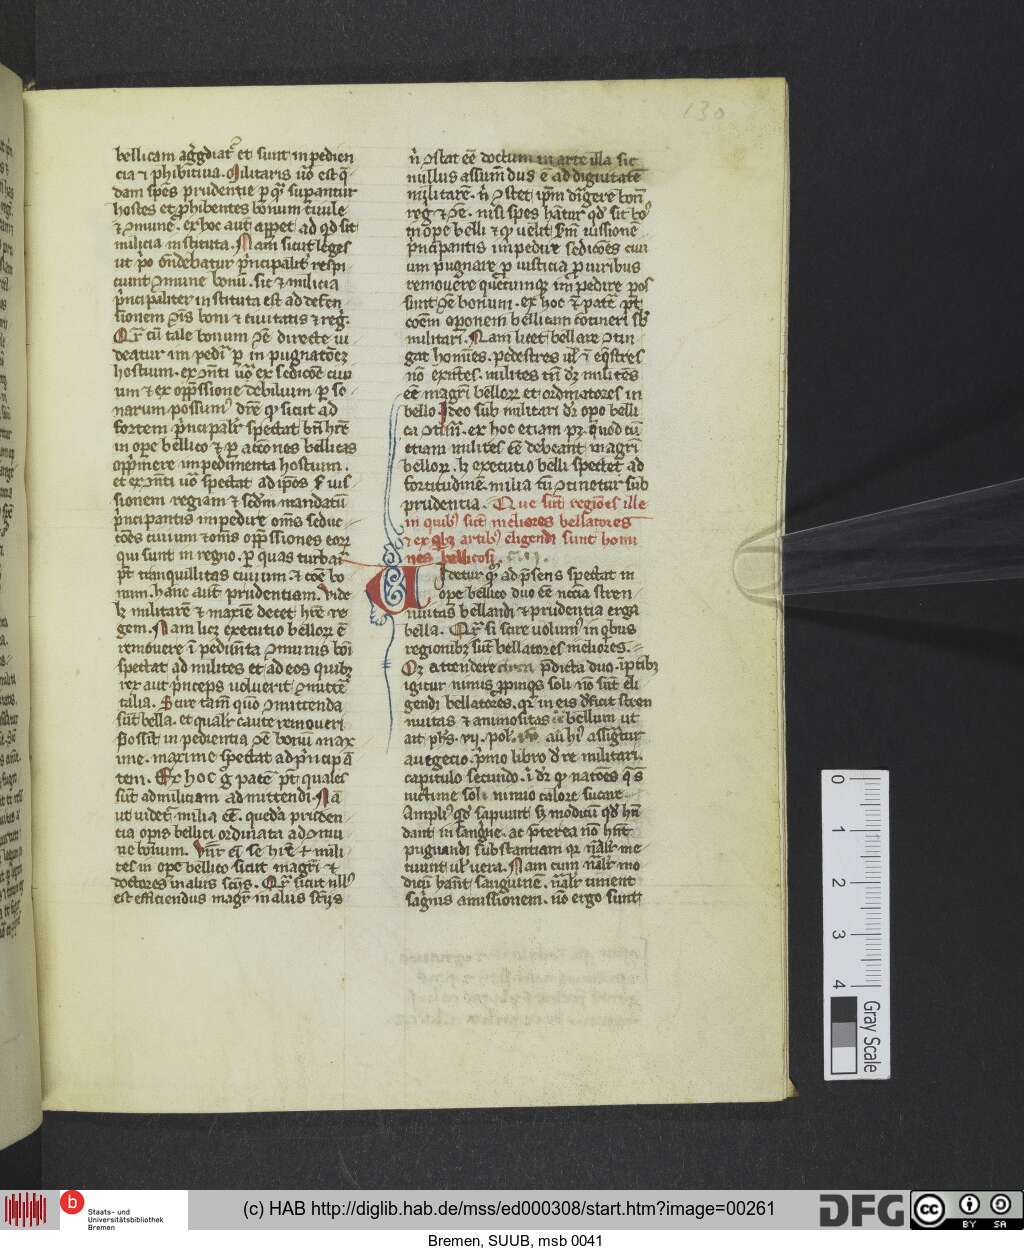 130
bellicam aggdiat᷑ et sunt in pedien
cia ⁊ phibitiua. Militaris uo est q̄
dam spēs prudentie p quā supantur
hostes et phibentes bonum ciuile
⁊ ꝯmune. ex hoc aut appet ad qd sit
milicia instituta. Nam sicut leges
ut po ondebatur pncipalit respi
ciunt ꝯmune bonū. sic ⁊ milicia
pncipaliter instituta est ad defen
sionem ꝯis boni ⁊ ciuitatis ⁊ regi.
Qr cū tale bonum ꝯe directe ui
deatur impediri p in pugnatōez
hostium. ex ꝯnti uo ex sedicōe ciui
um ⁊ ex oppssione debilium p so
narum possumꝰ dre ꝙ sicut ad
fortem pncipalr spectat bn hre
in ope bellico ⁊ p actōnes bellicas
oppmere impedimenta hostium.
et ex ꝯnti uo spectat ad ipos s uis
sionem regiam ⁊ scdm mandatū
pncipantis impedire oms seduc
tōes ciuium ⁊ oms oppssiones eorꝝ
qui sunt in regno. p quas turbari
pt tranquillitas ciuium. ⁊ coe bo
num. hanc aut prudentiam. vide
lꝫ militarē ⁊ maxie decet hre re
gem. Nam licꝫ executio bellorꝝ ⁊
remouere i pedimta ꝯmunis boni
spectat ad milites et ad eos quibꝫ
rex aut pnceps voluerit ꝯmittē
talia. Scire tam quō ꝯmittenda
sūt bella. et qualr caute remoueri
possit in pedientia ꝯe bonū max
ime. maxime spectat ad pncipā
tem. Ex hoc g patē pt quales
sūt ad miliciam ad mittendi. Nā
ut videt milia ee. quedā pruden
cia opis bellici ordinata ad ꝯmu
ne bonum. Vnr ei se hre t mili
tes in ope bellico sicut magri ⁊
doctores in aliis sciis. Qr sicut nllꝰ
est efficiendus magr in aliis sciis
n ꝯstat ee doctum in arte illa sic
nullus assumdus e ad dignitatē
militarē. n ꝯstet ipm diligere bonū
reg ⁊ ꝯe. nisi spes hatur qd sit boꝰ
in ope belli ⁊ ꝙ velit scdm iussionē
pncipantis impedire sedicōes ciui
um pugnare p iusticia p iuribus
remouere quecumque impedire pos
sunt ꝯe bonum. ex hoc ⁊ patē pt
coem oponem bellicam ꝯtineri sb
militari. Nam licet bellare ꝯtin
gat homies. pedestres ul ⁊ eqstres
nō existes. milites tn dr militēs
ee magri bellorꝝ et ordinatores in
bello. Ideo sub militari dr opo belli
ca ꝯtineri. ex hoc etiam pꝫ. quod cū
etiam milites ee debeant magri
bellorꝝ. lꝫ executio belli spectet ad
fortitudinē. milia tn ꝯtinetur sub
prudentia. Que sūt regiōes ille
in quibꝰ sūt meliores bellatores
⁊ ex qbꝫ artibꝰ eligendi sunt homi
nes bellicosi. c. ij.
Videtur qd ad psens spectat in
ope bellico duo ee nccia stren
nuitas bellandi ⁊ prudentia erga
bella. Qr si scire volumꝰ in qbus
regionibꝫ sūt bellatores meliores.
Oꝫ attendere circa pdicta duo. in ptibꝫ
igitur nimis ppinqs soli nō sūt eli
gendi bellatores. qr in eis dficit stren
nuitas ⁊ animositas ee bellum ut
ait phs. vij. pol. aūt hi assigtur
a vegecio. pmo libro d re militari.
capitulo secundo. i dr ꝙ natōes q s
uictime soli nimio calore siccate
Ampliꝰ qd sapiunt sꝫ modicū qd hn
dant in sangne. ac pterea nō hnt
pugnandi substantiam qr nalr me
tuunt ul vera. Nam cum nalr mo
dicū hant sanguinē. nalr timent
sagnis amissionem. nō ergo sunt
0
1
2
3
4
Gray Scale
b
Staats- und
Universitätsbibliothek
Bremen
(c) HAB http://diglib.hab.de/mss/ed000308/start.htm?image=00261
DFG
cc
BY SA
Bremen, SUUB, msb 0041